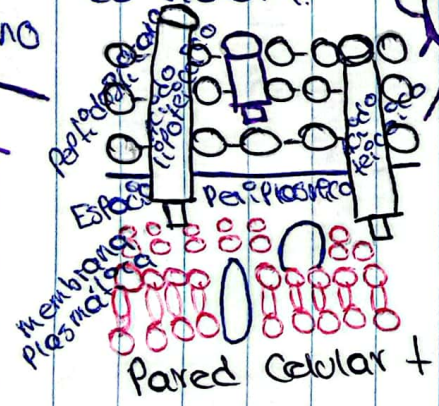 no
Peptidoglicano
Ácido lipoteicoico
Ácido teicoico
Espacio Periplasmico
membrana
Plasmática
Pared Celular +